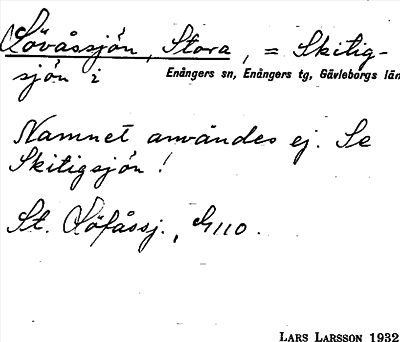 Lövåssjön, Stora, = Skitig-
sjön i Enångers sn, Enångers tg, Gävleborgs län
Namnet användes ej. Se
Skitigsjön!
St. Löfåssj., G110.
LARS LARSSON 1932